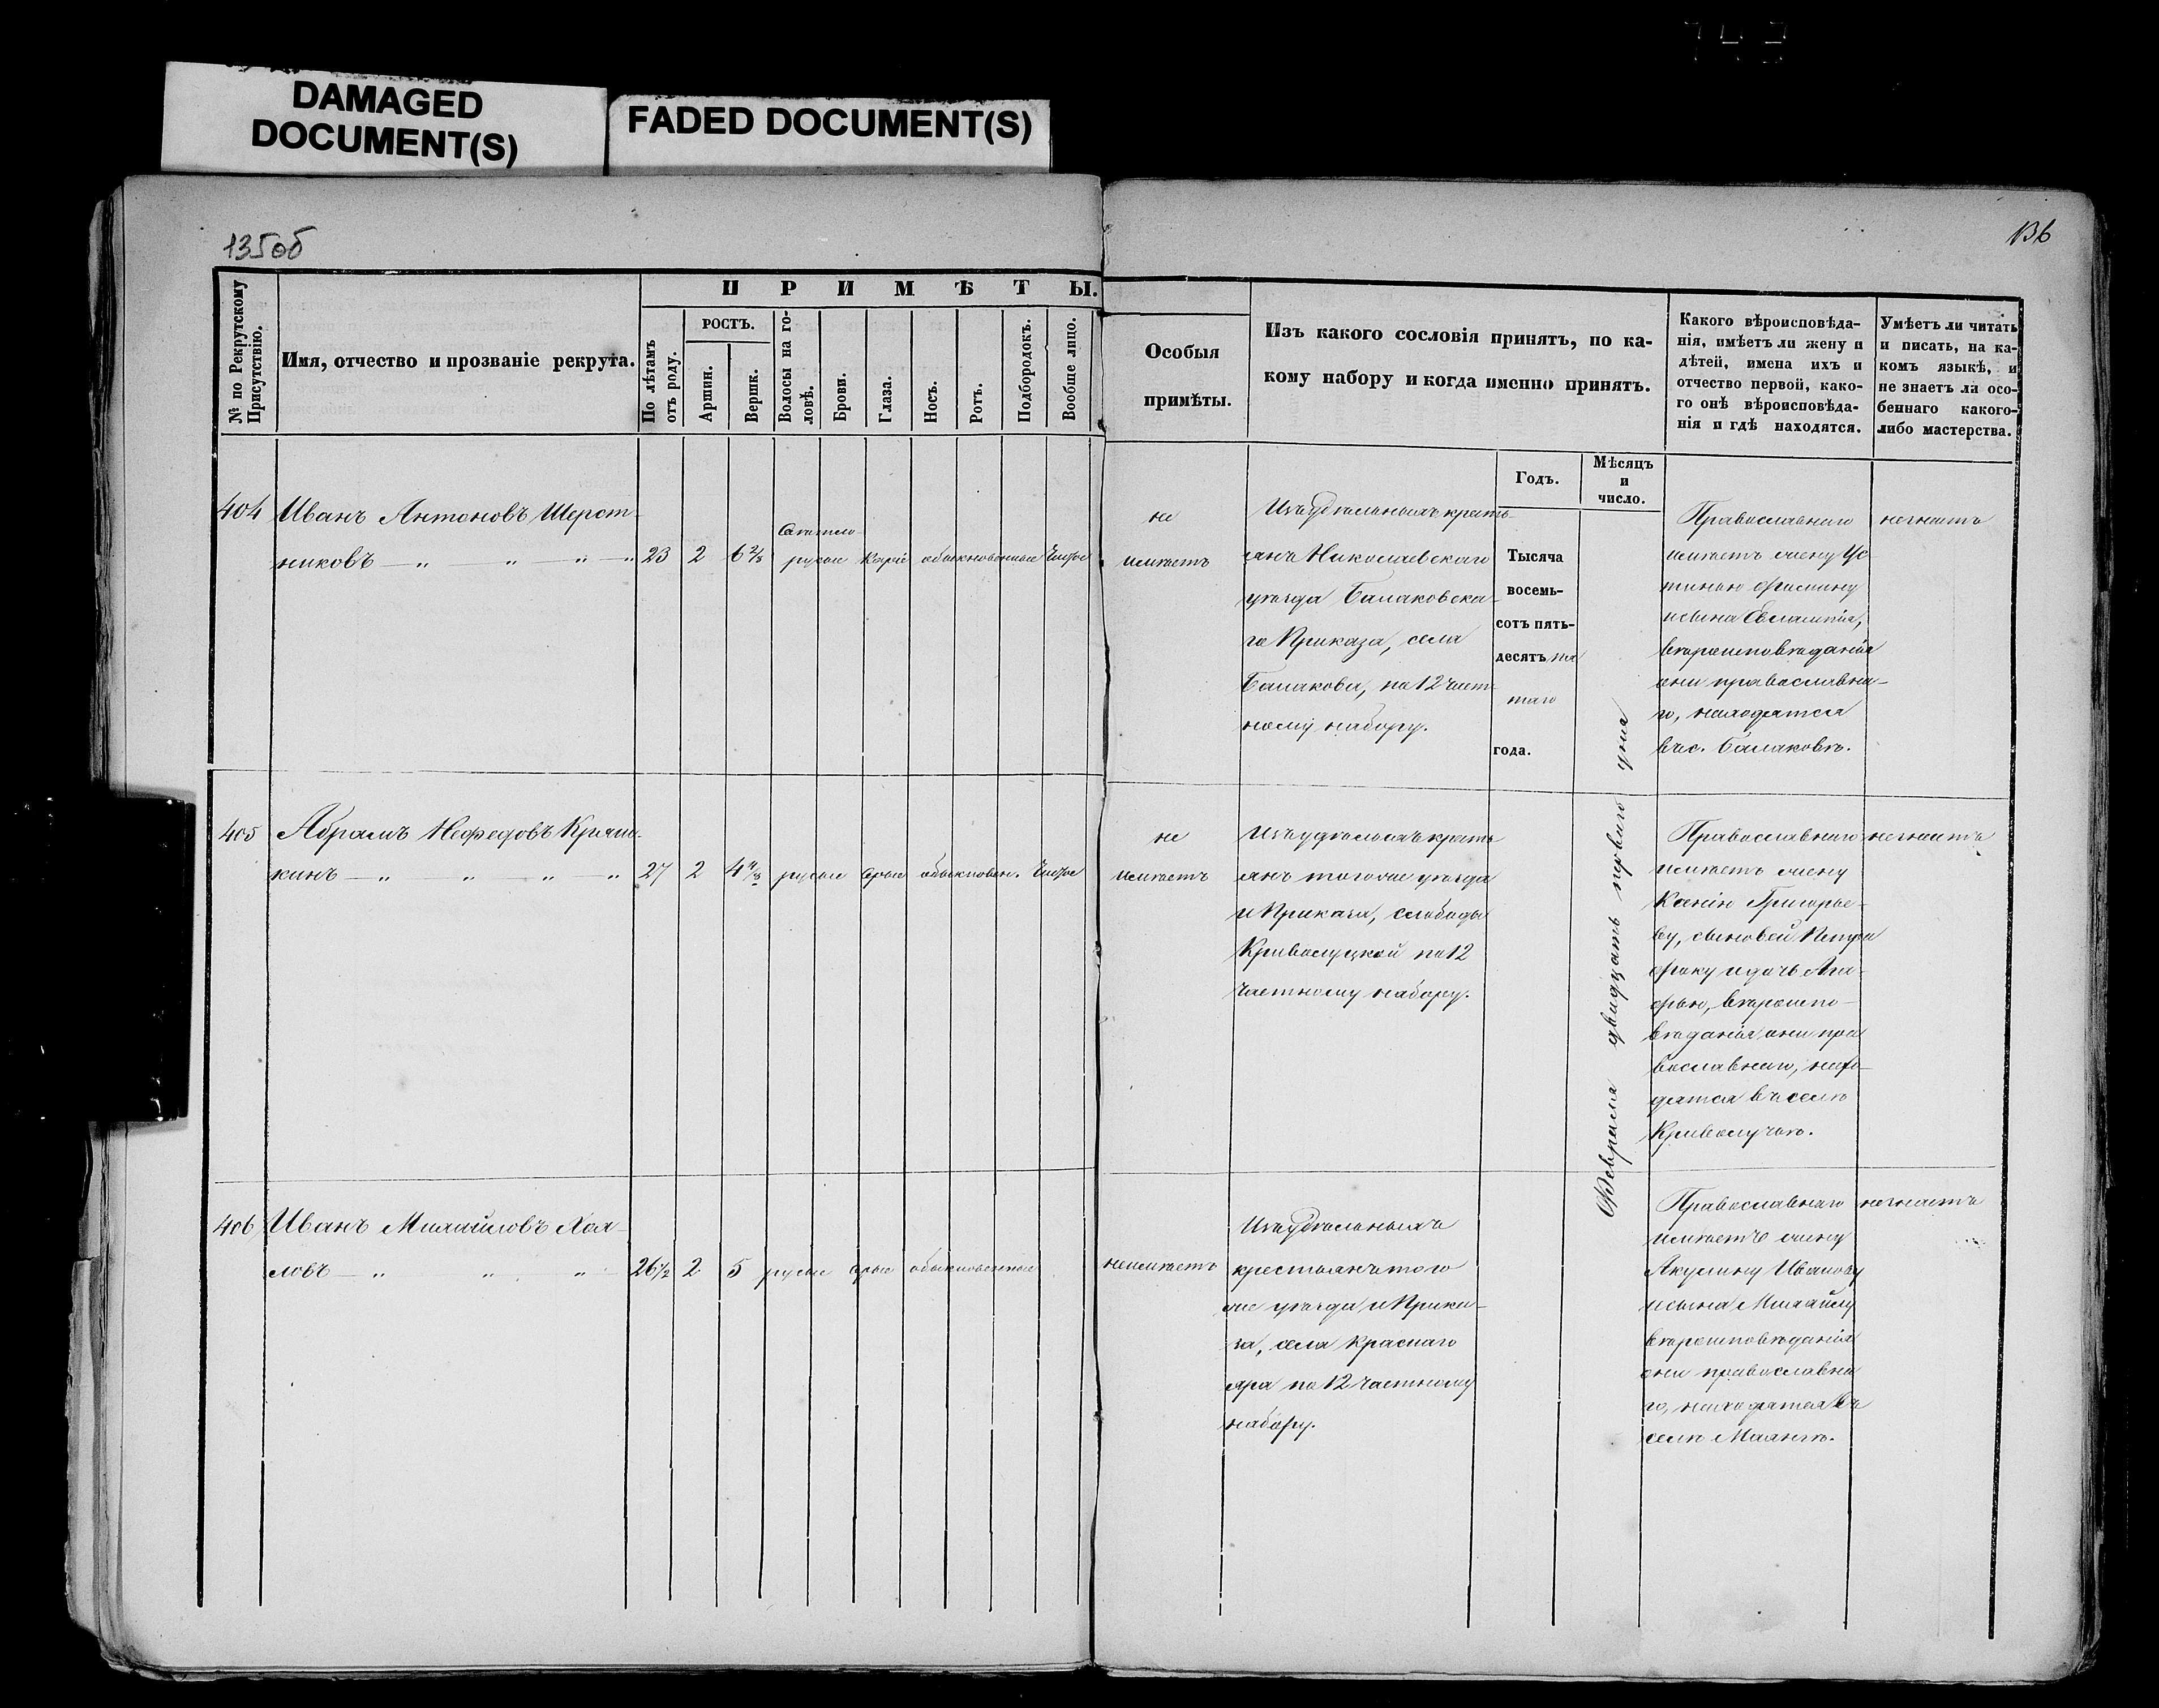 DAMAGED
DOCUMENT(S)
FADED DOCUMENT(S)
135об
136
№ по Рекрутскому
Присутствію.
Имя, отчество и прозваніе рекрута.
ПРИМѢТЫ.
По лѣтамъ
отъ роду.
РОСТЪ.
Аршин.
Вершк.
Волосы на го-
ловѣ.
Брови.
Глаза.
Носъ.
Ротъ.
Подбородокъ.
Вообще лицо.
Особыя
примѣты.
Изъ какого сословія принятъ, по ка-
кому набору и когда именно принятъ.
Годъ.
Мѣсяцъ
и
число.
Какого вѣроисповѣда-
нія, имѣетъ ли жену и
дѣтей, имена ихъ и
отчество первой, како-
го онѣ вѣроисповѣда-
нія и гдѣ находятся.
Умѣетъ ли читать
и писать, на ка-
комъ языкѣ, и
не знаетъ ли осо-
беннаго какого-
либо мастерства.
404 Иванъ Антоновъ Шерст-
никовъ — „ „ — „ — „ 23 2 6 2/8
русые Каріе обыкновенные Чистое
не
имѣетъ
Изъ удѣльныхъ кресть-
янъ Николаевскаго
уѣзда Балаковска-
го Приказа, села
Балакова, по 12 част-
ному набору.
Тысяча
восемь-
сотъ пять-
десятъ пя
таго
года.
Февраля двадцать перваго дня
Православнаго
имѣетъ жену Ус-
тинью Фомину
и сына Евлампія,
вѣроисповѣданія
они православна-
го, находятся
въ с. Балаковѣ.
незнаетъ
405 Абрамъ Нефедовъ Кряш-
кинъ — „ — „ — „ — „ 27 2 4 4/8 русые сѣрые обыкновен. Чистое
не
имѣетъ
Изъ удѣльныхъ кресть
янъ того же уѣзда
и Приказа, слободы
Криволуцкой по 12
частному набору.
Православнаго
имѣетъ жену
Ксенію Григорье-
ву, сыновей Петра
и дочь Ага-
фью, вѣроиспо-
вѣданія они пра
вославнаго, нахо-
дятся въ селѣ
Криволучьѣ.
незнаетъ
406 Иванъ Михайловъ Хох-
ловъ — „ „ „ — 26½ 2 5 русые сѣрые обыкновенные
неимѣетъ
Изъ удѣльныхъ
крестьянъ того
же уѣзда и Прика-
за, села Краснаго
яра по 12 частному
набору.
Православнаго
имѣетъ жену
Акулину Иванову
и сына Михайлу
вѣроисповѣданія
они православна
го, находятся въ
селѣ Маянгѣ.
незнаетъ